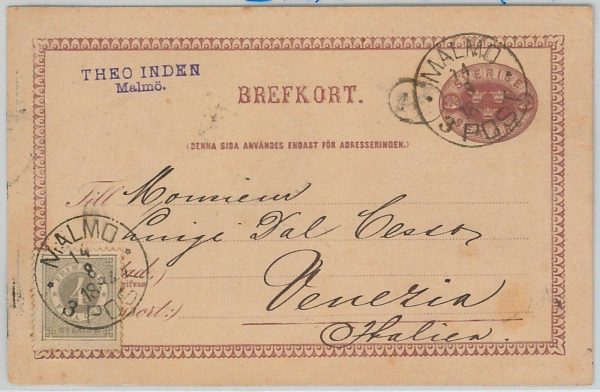 THEO INDEN
Malmö.
BREFKORT.
(DENNA SIDA ANVÄNDES ENDAST FÖR ADRESSERINGEN.)
MALMÖ
14
3 POST
SVERIGE
Till Monsieur
Luigi Dal Cesso
Venezia
Italien.
MALMÖ
14
8
18
3 POST